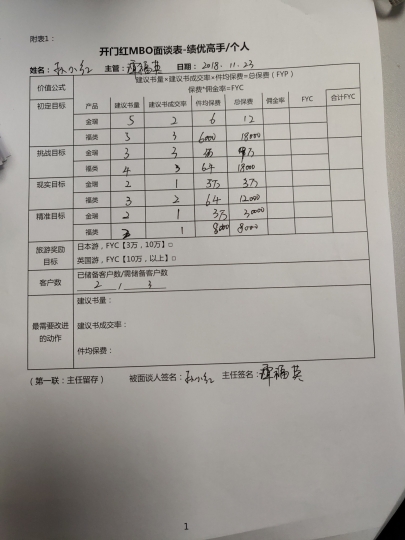 附表1：
开门红MBO面谈表-绩优高手/个人
姓名：孙小红 主管：覃福英 日期：2018.11.23
价值公式 建议书量×建议书成交率×件均保费=总保费（FYP）
保费*佣金率=FYC
初定目标 产品 建议书量 建议书成交率 件均保费 总保费 佣金率 FYC 合计FYC
金瑞 5 2 6 12
福类 3 3 6000 18000
挑战目标 金瑞 3 3 万 9万
福类 4 3 6千 18000
现实目标 金瑞 2 1 3万 3万
福类 3 2 6千 12000
精准目标 金瑞 2 1 3万 30000
福类 2 1 8000 8000
旅游奖励 日本游，FYC【3万，10万】□
目标 英国游，FYC【10万，以上】□
客户数 已储备客户数/需储备客户数
2 / 3
建议书量：
最需要改进 建议书成交率：
的动作
件均保费：
（第一联：主任留存） 被面谈人签名：孙小红 主任签名：覃福英
1